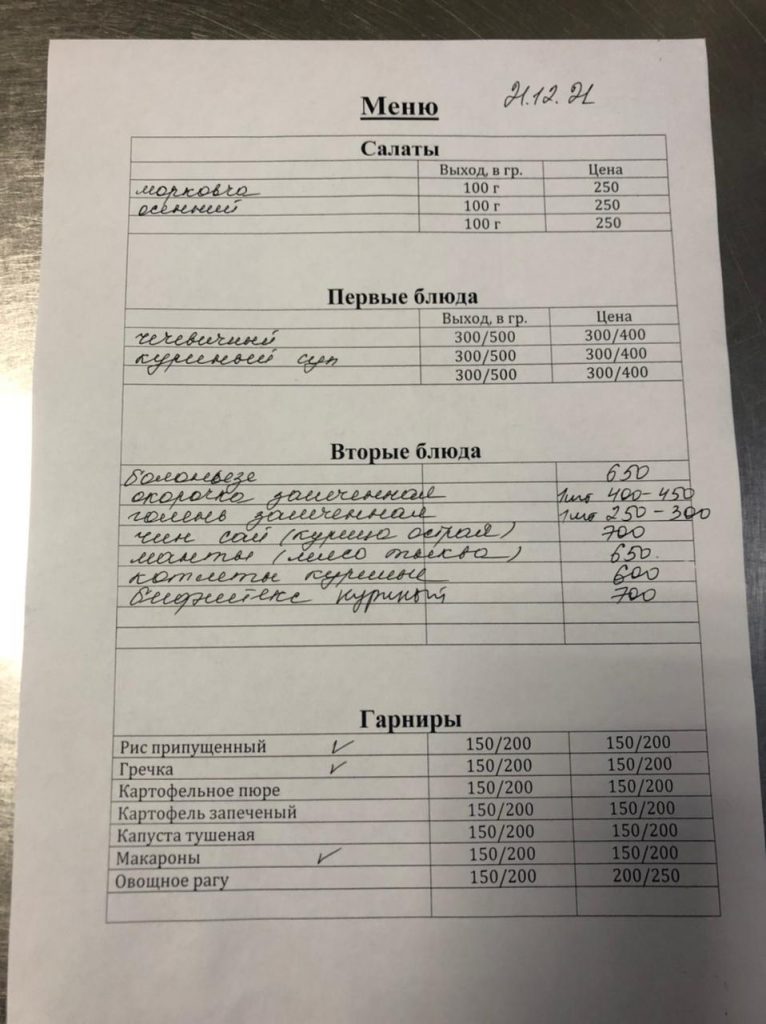 Меню 21.12.21
Салаты
Выход, в гр. Цена
морковча 100 г 250
осенний 100 г 250
100 г 250
Первые блюда
Выход, в гр. Цена
чечевичный 300/500 300/400
куриный суп 300/500 300/400
300/500 300/400
Вторые блюда
болоньезе 650
окорочка запеченная 1шт 400-450
голень запеченная 1шт 250-300
чин сай (курица острая) 700
манты (мясо тыква) 650.
котлеты куриные 600
бифштекс куриный 700
Гарниры
Рис припущенный ✓ 150/200 150/200
Гречка ✓ 150/200 150/200
Картофельное пюре 150/200 150/200
Картофель запеченый 150/200 150/200
Капуста тушеная 150/200 150/200
Макароны ✓ 150/200 150/200
Овощное рагу 150/200 200/250